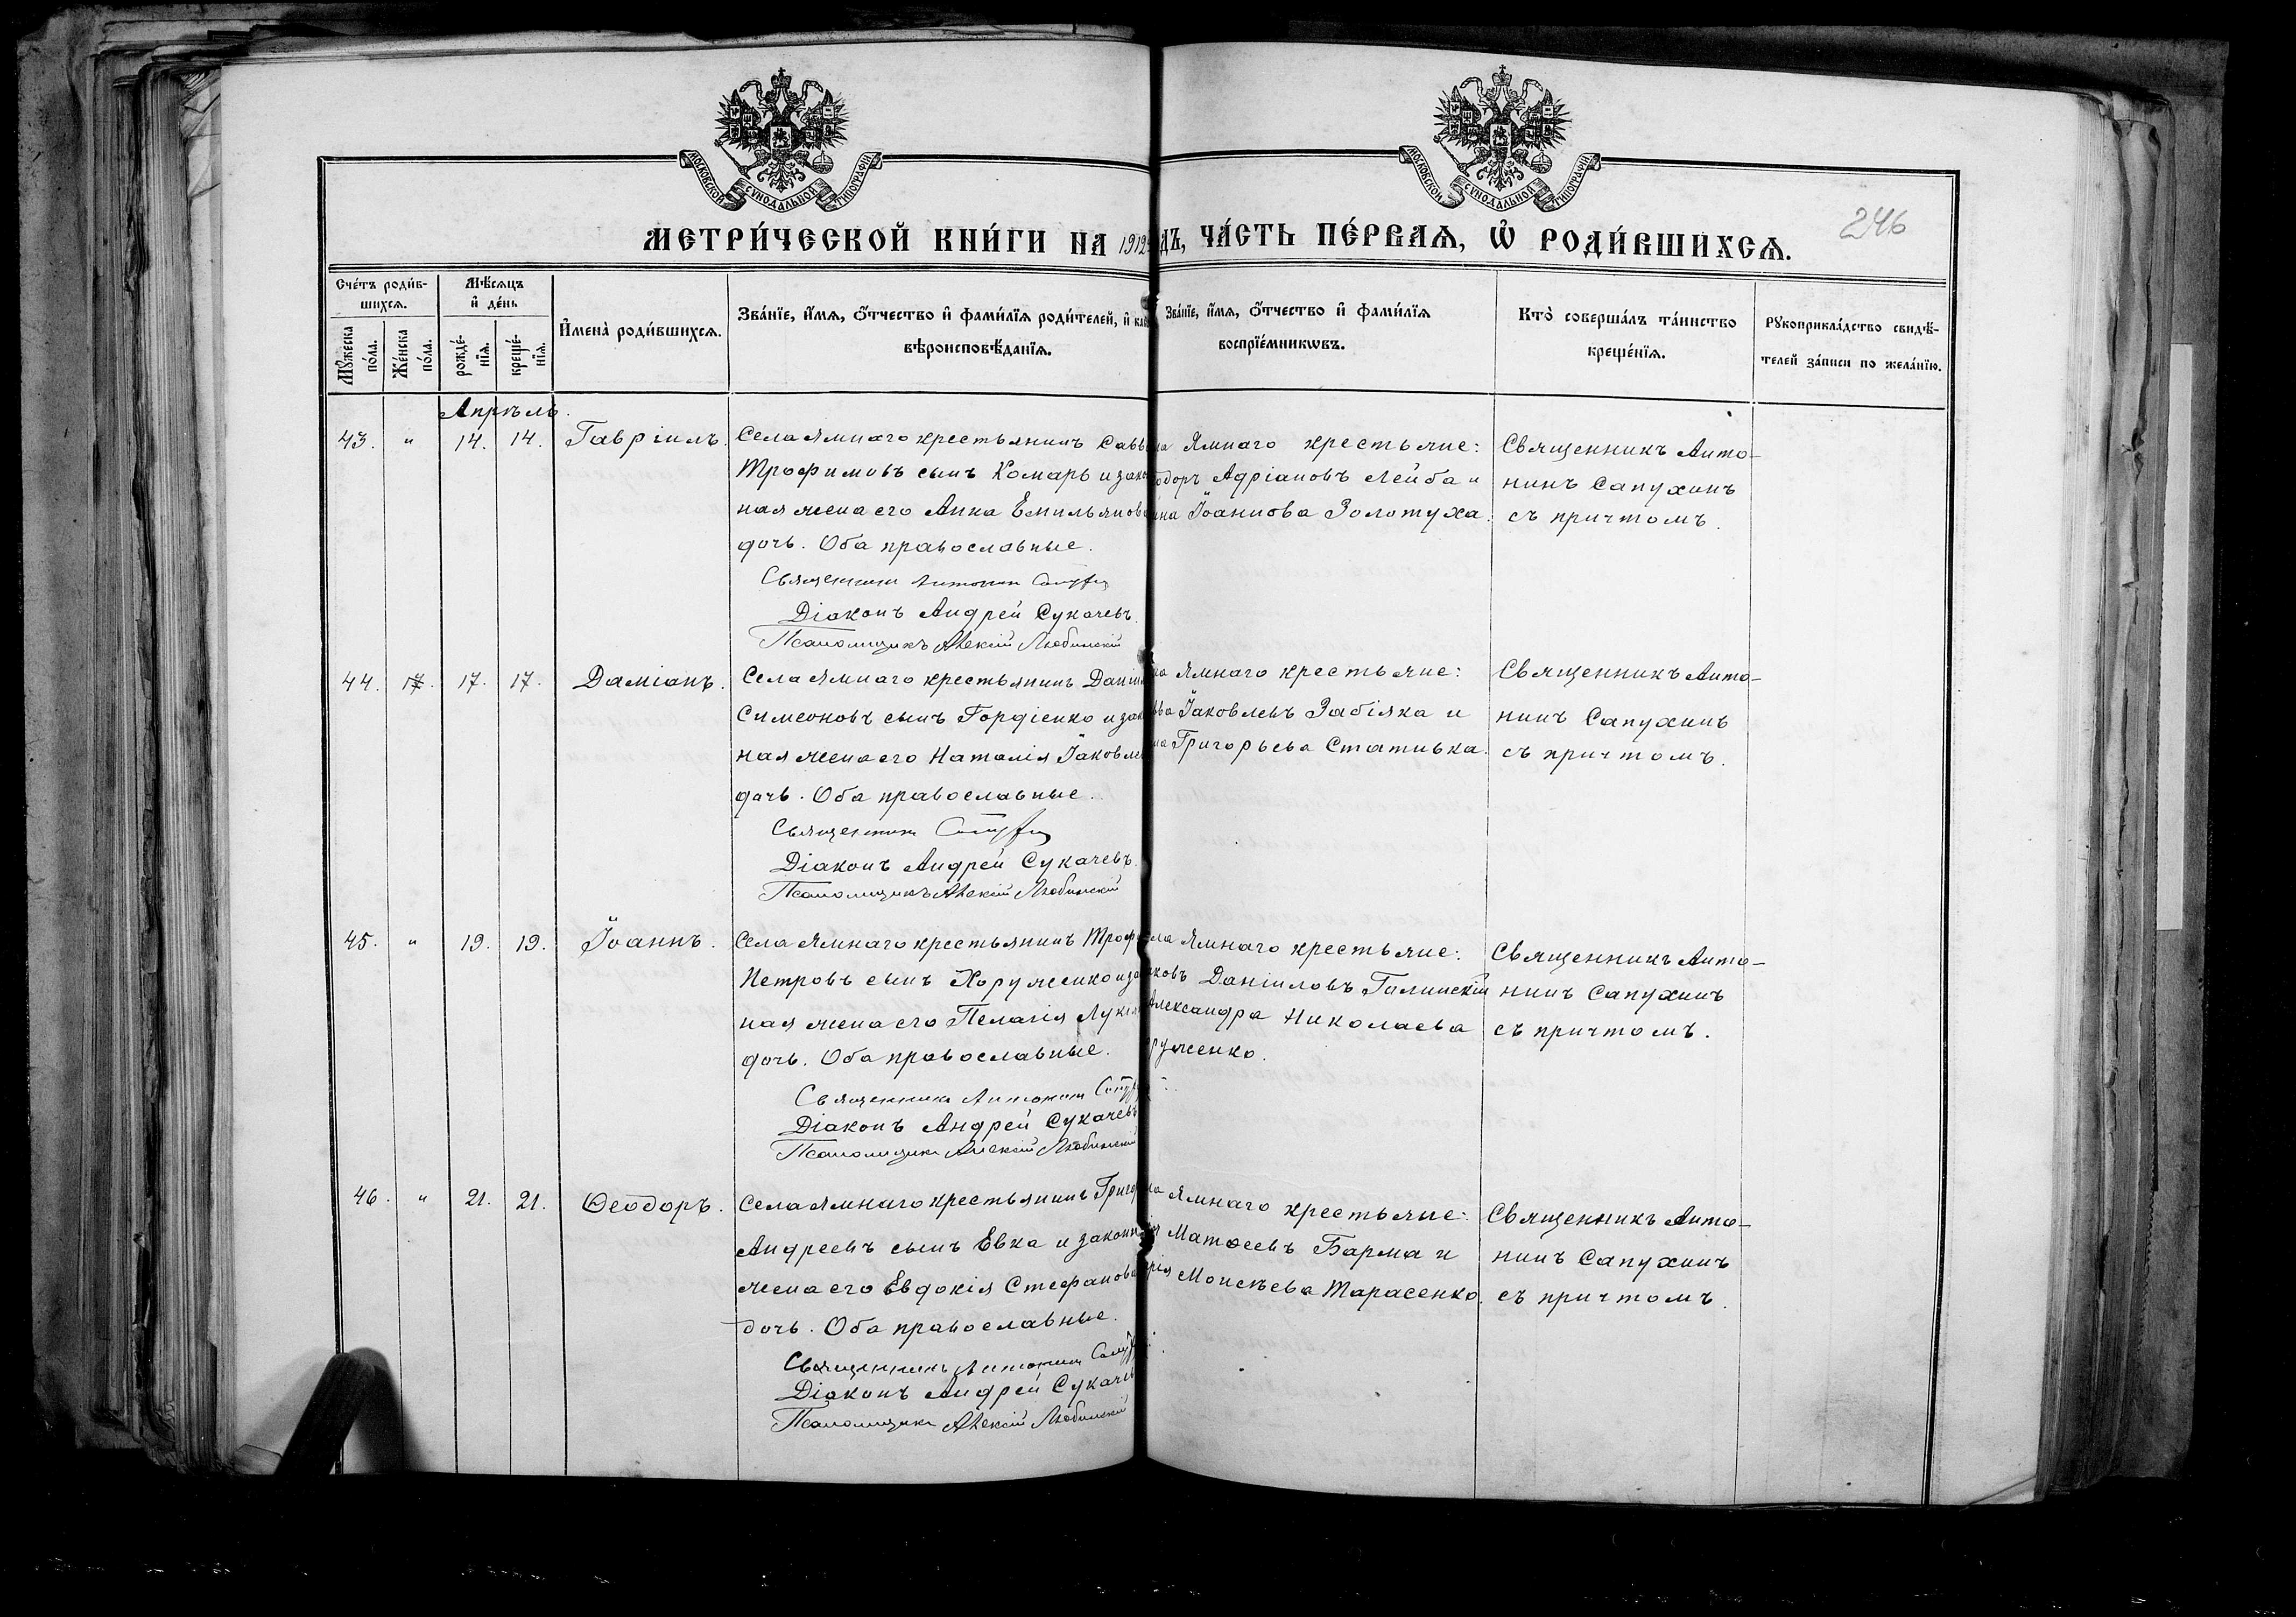 МОСКОВСКОЙ СУНОДАЛЬНОЙ ТИПОГРАФІИ
МОСКОВСКОЙ СУНОДАЛЬНОЙ ТИПОГРАФІИ
246
МЕТРИ́ЧЕСКОЙ КНИ́ГИ НА 1912
ДЪ, ЧА́СТЬ ПЕ́РВАѦ, Ѽ РОДИ́ВШИХСѦ.
Сче́тъ роди́в-
шихсѧ.
Мѣ́сѧцъ
и҆ де́нь
Мꙋ́жеска по́ла.
Же́нска по́ла.
рожде́-нїѧ.
креще́-нїѧ.
И҆мена̀ роди́вшихсѧ.
Зва́нїе, и҆́мѧ, ѻ҆́тчество и҆ фами́лїѧ роди́телей, и҆
вѣроисповѣ́данїѧ.
Зва́нїе, и҆́мѧ, ѻ҆́тчество и҆ фами́лїѧ
воспрїе́мникѡвъ.
Кто̀ соверша́лъ та́инство
креще́нїѧ.
Рꙋкоприкла́дство свидѣ́-
телей за́писи по жела́нїю.
Апрѣль.
43. " 14. 14. Гавріилъ.
Села Ямнаго крестьянинъ Савв
Трофимовъ сынъ Комарь и зако
ная жена его Анна Емильянов
дочь. Оба православные.
Священникъ Антонинъ Сапухин
Діаконъ Андрей Сукачевъ.
Псаломщикъ Алексій Любинскій
Ямнаго крестьяне:
одоръ Адріановъ Лейба и
Іоаннова Золотуха.
Священникъ Анто-
нинъ Сапухинъ
съ причтомъ.
44. 17. 17. 17. Даміанъ.
Села Ямнаго крестьянинъ Даніи
Симеоновъ сынъ Гордіенко и зак
ная жена его Наталія Іаковле
дочь. Оба православные.
Священникъ Сапухин
Діаконъ Андрей Сукачевъ.
Псаломщикъ Алексій Любинскій
Ямнаго крестьяне:
ва Іаковлевъ Забіяка и
Григорьева Стативка.
Священникъ Анто-
нинъ Сапухинъ
съ причтомъ.
45. " 19. 19. Іоаннъ.
Села Ямнаго крестьянинъ Троф
Петровъ сынъ Хоруженко и за
ная жена его Пелагія Луки
дочь. Оба православные.
Священникъ Антонинъ Сапух
Діаконъ Андрей Сукачевъ
Псаломщикъ Алексій Любинскій
ла Ямнаго крестьяне:
ковъ Даніиловъ Галинскій
Александра Николаева
руженко.
Священникъ Анто-
нинъ Сапухинъ
съ причтомъ.
46. " 21. 21. Ѳеодоръ.
Села Ямнаго крестьянинъ Григо
Андреевъ сынъ Евка и законн
жена его Евдокія Стефанова
дочь. Оба православные.
Священникъ Антонинъ Сапух
Діаконъ Андрей Сукачев
Псаломщикъ Алексій Любинскій
Ямнаго крестьяне:
Матѳеевъ Барма и
рія Моисѣева Тарасенко.
Священникъ Анто-
нинъ Сапухинъ
съ причтомъ.